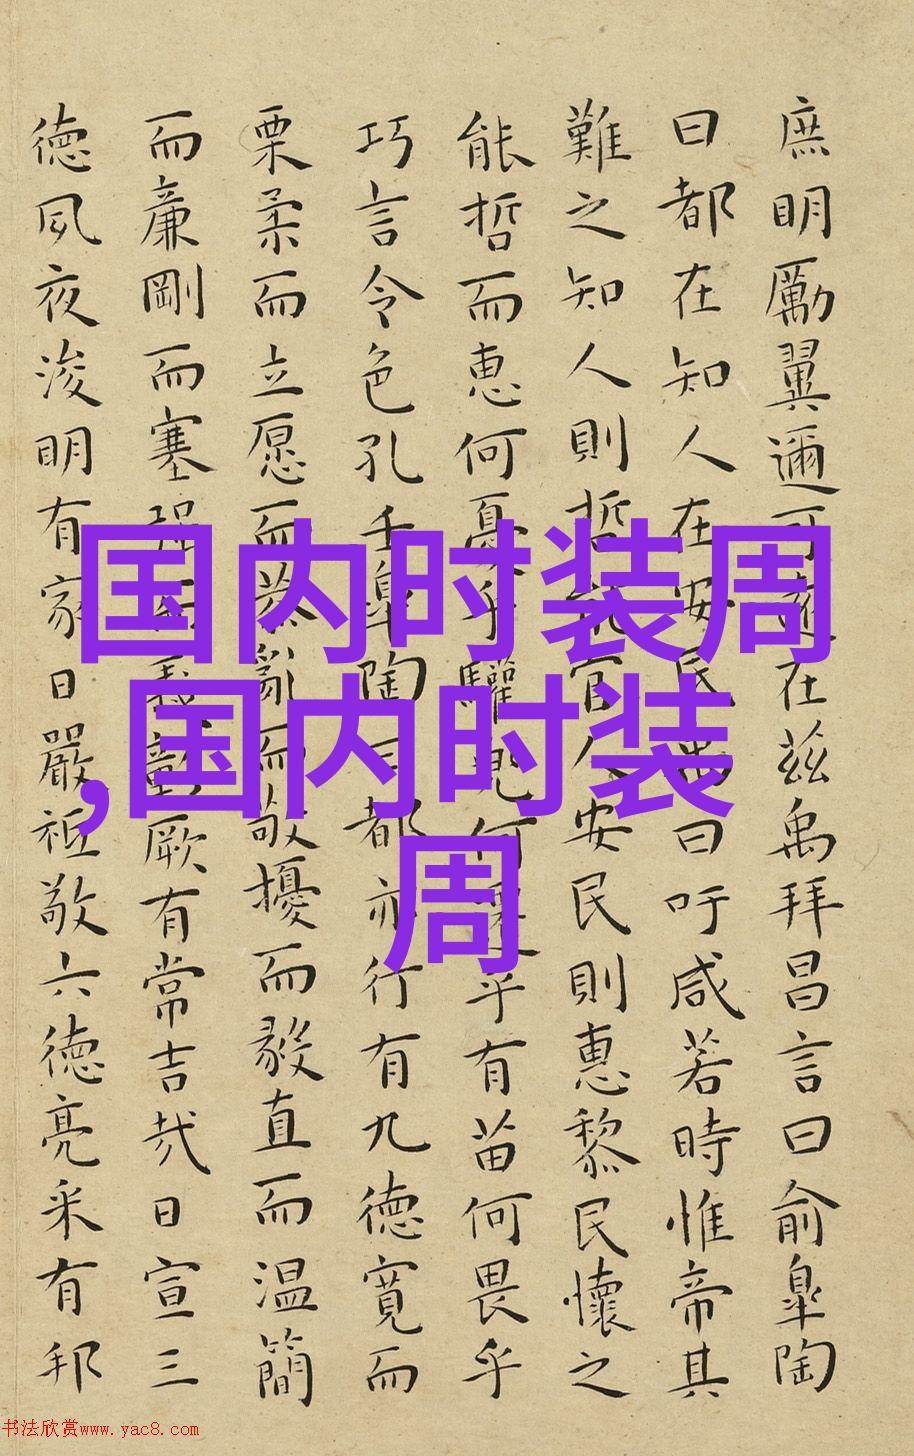 庶明勵翼邇可遠在茲禹拜昌言曰俞臯陶
曰都在知人在安民禹曰吁咸若時惟帝其
難之知人則哲能官人安民則惠黎民懷之
能哲而惠何憂乎驩兜何遷乎有苗何畏乎
巧言令色孔壬臯陶曰都亦行有九德寬而
栗柔而立愿而恭亂而敬擾而毅直而温簡
而廉剛而塞彊而義彰厥有常吉哉日宣三
德夙夜浚明有家日嚴祗敬六德亮采有邦
国内时装周
,国内时装
周
书法欣赏www.yac8.com